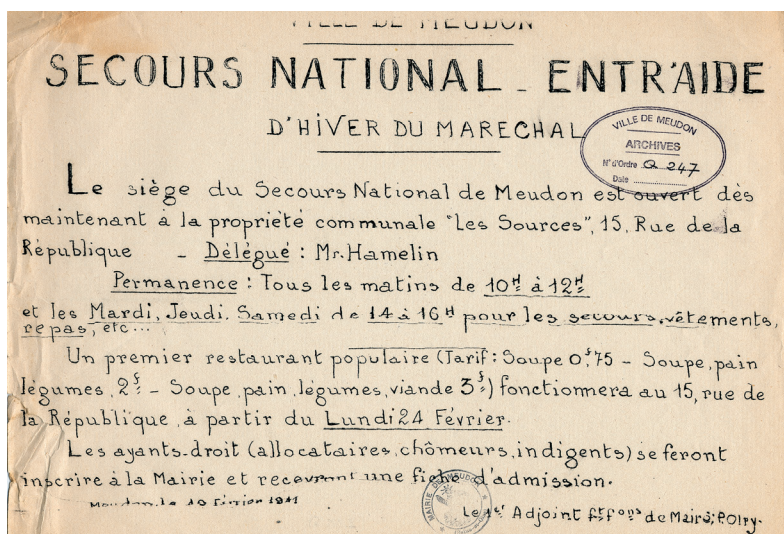 VILLE DE MEUDON
SECOURS NATIONAL_ENTR'AIDE
D'HIVER DU MARECHAL
VILLE DE MEUDON
ARCHIVES
N° d'Ordre Q 247
Date
Le siège du Secours National de Meudon est ouvert dès
maintenant à la propriété communale "Les Sources", 15, Rue de la
République _ Délégué : Mr. Hamelin
Permanence : Tous les matins de 10H à 12H
et les Mardi, Jeudi, Samedi de 14 à 16H pour les secours, vêtements,
repas, etc...
Un premier restaurant populaire (Tarif : Soupe 0f,75 - Soupe, pain
légumes, 2f - Soupe, pain, légumes, viande 3f) fonctionnera au 15, rue de
la République, à partir du Lundi 24 Février.
Les ayants-droit (allocataires, chômeurs, indigents) se feront
inscrire à la Mairie et recevront une fiche d'admission.
Meudon, le 19 Février 1941
MAIRIE DE MEUDON
Le 1er Adjoint ft fons de Maire, P. Olry.